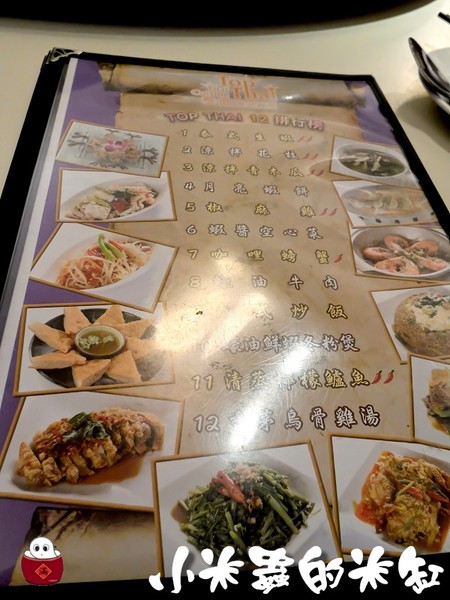 Top
Thai
TOP THAI 12 排行榜
1 泰式生蝦
2 涼拌花枝
3 涼拌青木瓜
4 月亮蝦餅
5 椒麻雞
6 蝦醬空心菜
7 咖哩螃蟹
8 油牛肉
式炒飯
油鮮蝦冬粉煲
11 清蒸檸檬鱸魚
12 茅烏骨雞湯
小米蟲的米缸